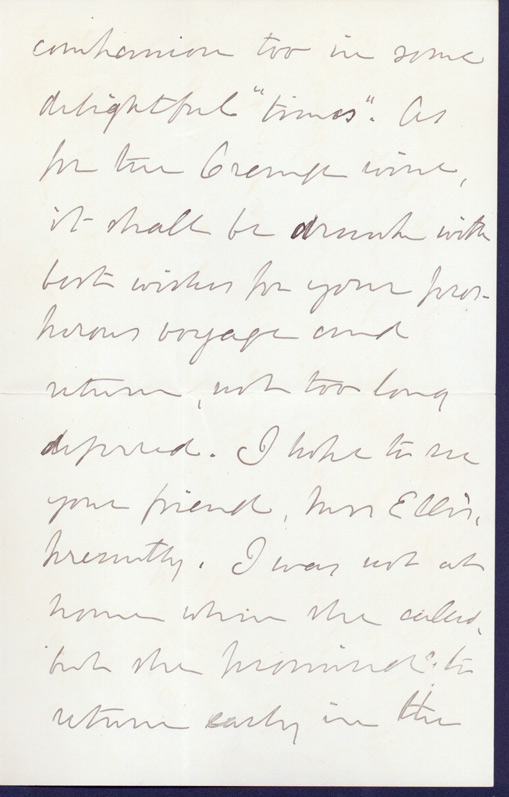 companion too in some
delightful "times". As
for the Orange wine,
it shall be drunk with
best wishes for your pros-
perous voyage and
return, not too long
deferred. I hope to see
your friend, Miss Ellis,
presently. I was not at
home when she called,
but she promised to
return early in the